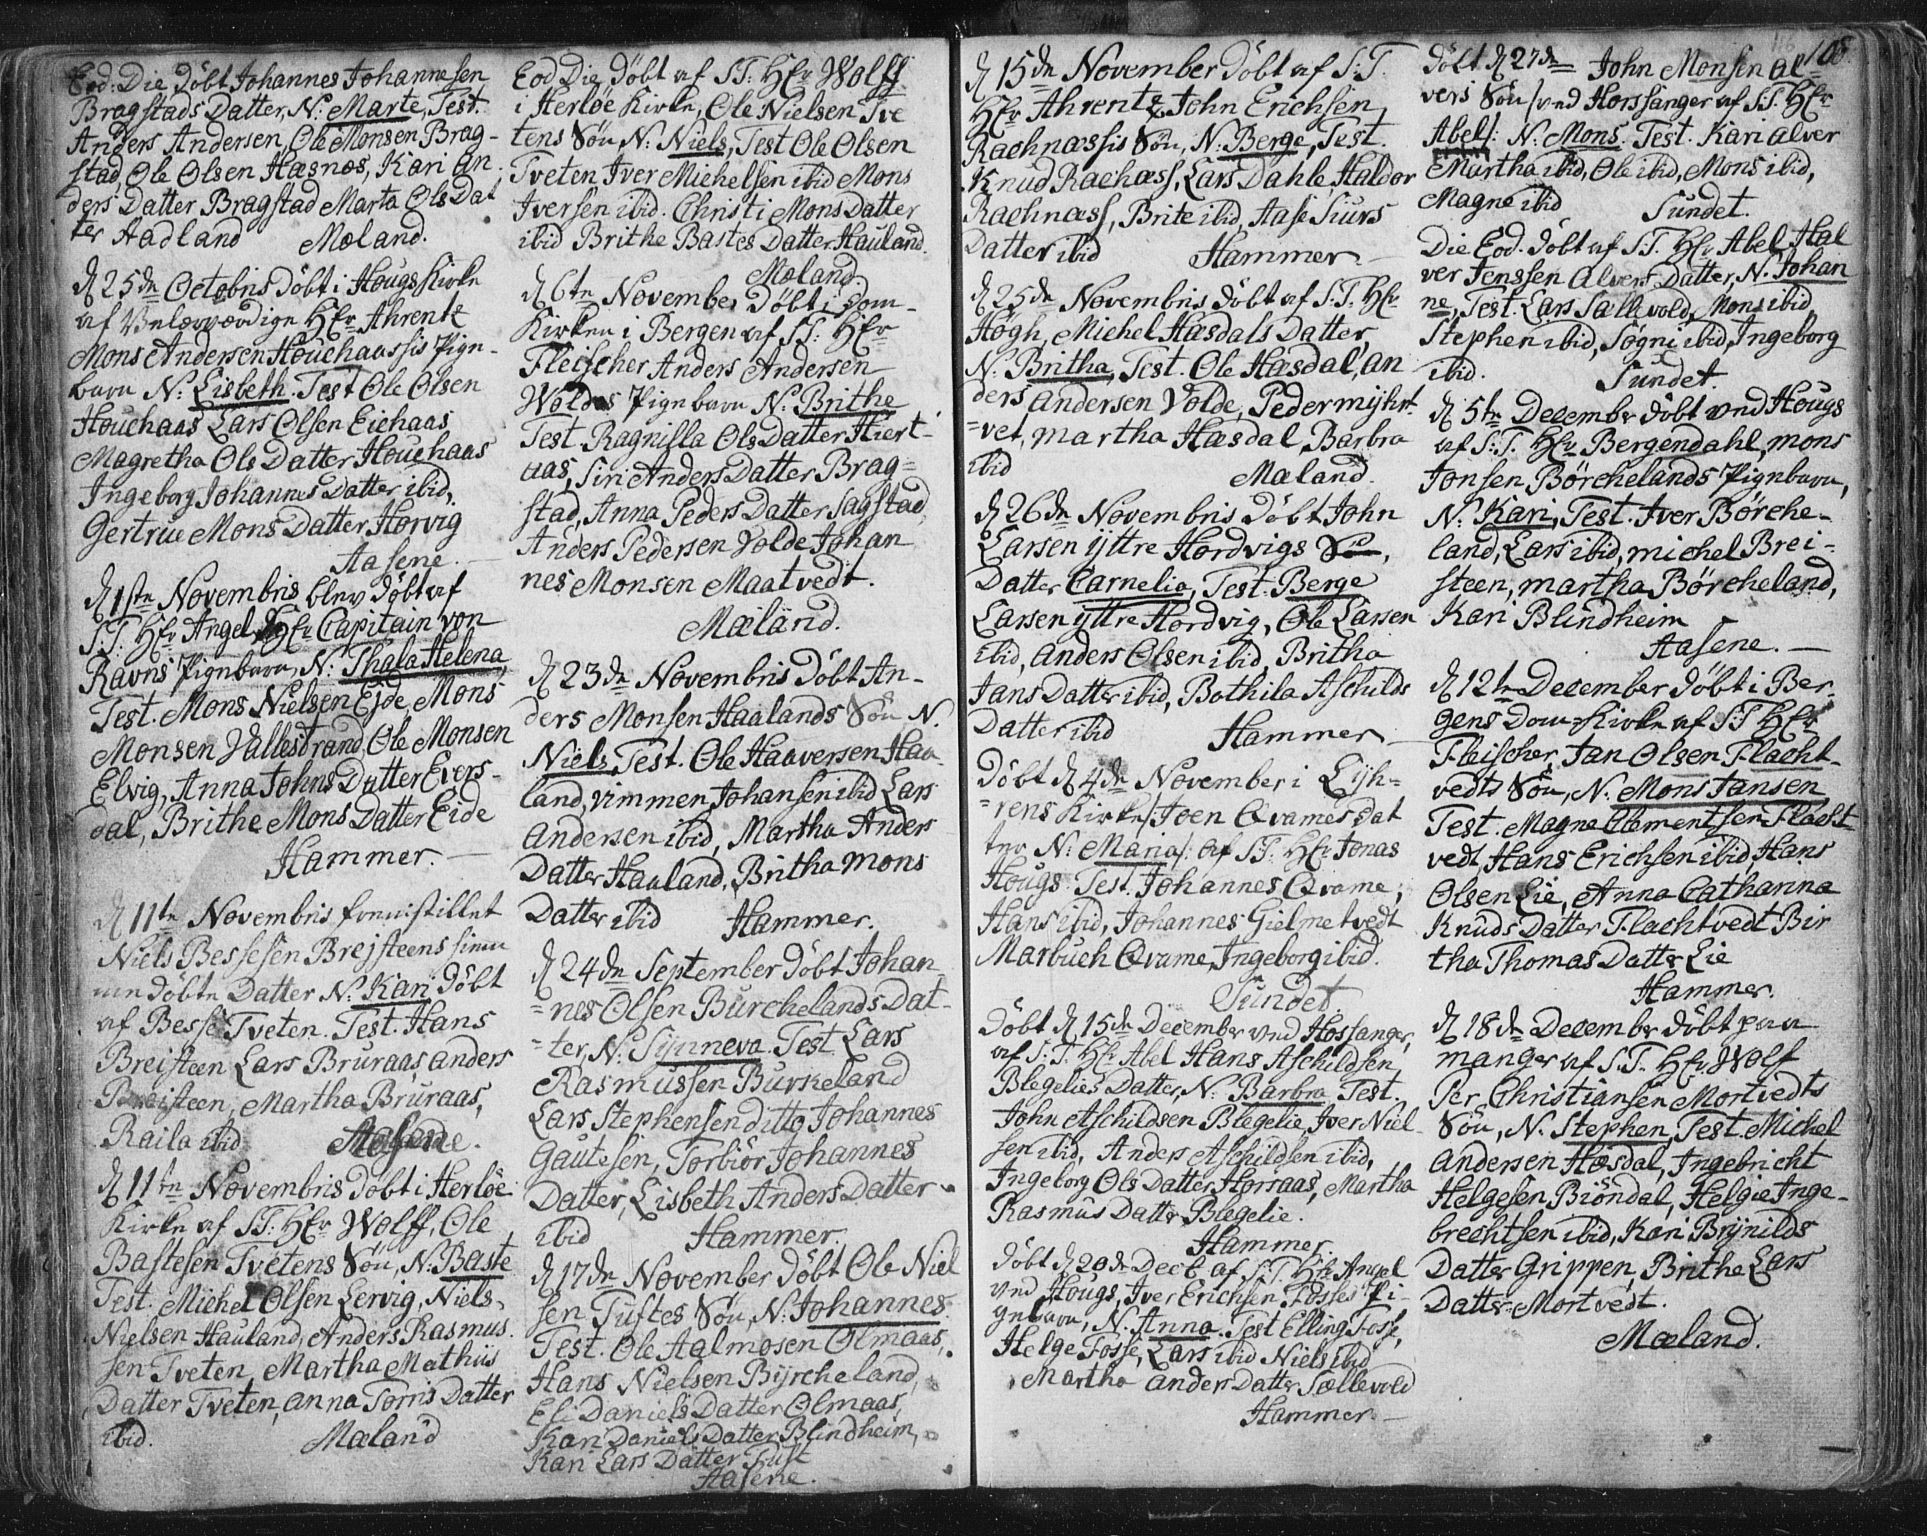 Eod: Die döbt Johannes Johannesen
Bragstads Datter, N: Marte, Test.
Anders Andersen, Ole Monsen Brag-
stad, Ole Olsen Hasnøs, Kari An
ders Datter Bragstad Marta Ols Dat
ter Aadland Mæland.
d 25de Octobris döbt i Hougs Kirke
af Velærværdige Hr Ahrentz
Mons Andersen Houchaassis Pign-
barn N: Lisbeth. Test Ole Olsen
Houchaas Lars Olsen Eichaas
Magretha Ols Datter Houchaas
Ingeborg Johannes Datter ibid,
Gertrue Mons Datter Horvig
Aasene.
d 1ste Novembris blev döbt af
S.T. Hr Angel Hr Capitain von
Ravns Pignbarn, N: Thala Helena,
Test. Mons Nielsen Ejde, Mons
Monsen Vallestrand, Ole Monsen
Elvig, Anna Johns Datter Evers-
dal, Brithe Mons Datter Eide
Hammer.
d 11te Novembris fremstillet
Niels Bessesen Brejsteens hiem
me döbte Datter N: Kari döbt
af Besse Tveten. Test. Hans
Breisteen Lars Bruraas, anders
Breisteen, Martha Bruraas,
Raila ibid Aasene.
d 11te Novembris döbt i Herlöe
Kirke af S.T. Hr Wolff, Ole
Bastesen Tvetens Sön, N: Baste
Test. Michel Olsen Lervig, Niels
Nielsen Hauland, Anders Rasmus
sen Tveten, Martha Mathiis
Datter Tveten, anna Torris Datter
ibid. Mæland
Eod Die döbt af S.T. Hr Wolff
i Herlöe Kirke, Ole Nielsen Tve
tens Sön N: Niels, Test Ole Olsen
Tveten Iver Michelsen ibid Mons
Iversen ibid. Christi Mons Datter
ibid Brithe Bastes Datter Hauland.
Mæland
d 6te November döbt i Dom-
Kirken i Bergen af S.T. Hr
Fleischer Anders Andersen
Woldes Pignbarn N: Brithe
Test. Ragnilla Ols Datter Hiert-
aas, Siri Anders Datter Brag-
stad, Anna Peders Datter Sagstad,
Anders Pedersen Volde Johan
nes Monsen Maatvedt.
Mæland.
d 23de Novembris Döbt An-
ders Monsen Haalands Sön N.
Niels, Test. Ole Haaversen Haa-
land, Vimmen Johansen ibid Lars
Andersen ibid, Martha Anders
Datter Haaland, Britha Mons
Datter ibid Hammer.
d 24de September döbt Johan-
nes Olsen Burchelands Dat-
ter, N: Synneva. Test. Lars
Rasmussen Burkeland
Lars Stephensen ditto Johannes
Gautesen, Torbiör Johannes
Datter, Lisbeth Anders Datter
ibid Hammer.
d 17de November döbt Ole Niel
sen Tuftes Sön, N: Johannes.
Test. Ole Aalmosen Olmaas,
Hans Nielsen Byrcheland,
Eli Daniels Datter Olmaas,
Kari Daniels Datter Blindheim,
Kari Lars Datter Tuft
Aasene.
d 15de November döbt af S.T.
Hr Ahrentz John Erichsen
Rachnæssis Sön, N. Berge, Test.
Knud Rachæss, Lars Dahle, Haldor
Rachnæss, Brite ibid, Aase Siurs
Datter ibid Hammer
d 25de Novembris döbt af S.T. Hr
Högh, Michel Hæsdals Datter,
N: Britha, Test. Ole Hæsdal, An
ders Andersen Volde, Peder Mijhrt-
vet, Martha Hæsdal, Barbra
ibid Mæland.
d 26de Novembris Döbt John
Larsen yttre Hordvigs Sön,
Datter Carnelia, Test. Berge
Larsen yttre Hordvig, Ole Larsen
ibid, Anders Olsen ibid, Britha
Jans Datter ibid, Bothila Aschilds
Datter ibid Hammer
Döbt d 4de November i Lyh-
rens Kirke /: Joen Qvames dat
ter N: Maria :/ af S.T. Hr Jonas
Hougs. Test. Johannes Qvame,
Hans ibid, Johannes Gielmetvedt
Marbueh Qvame, Ingeborg ibid.
Sundet
Döbt d 15de December ved Hossanger,
af S.T. Hr Abel Hans Aschildsen
Blegelies Datter, N: Barbra, Test.
John Aschildsen Blegelie, Iver Niel-
sen ibid, Anders Aschildsen ibid,
Ingeborg Ols Datter Horraas, Martha
Rasmus Datter Blegelie.
Hammer
Döbt d 20de Decb. af S.T. Hr Angel
ved Hougs, Iver Erichsen Fosses Pi-
gebarn, N. Anna. Test Elling Fosse,
Helge Fosse, Lars ibid Niels ibid
Martha Anders Datter Sællevold
Hammer
108.
döbt d 27de John Monsen Al-
vers Sön /: ved Hossanger af S.T. Hr
Abel :/ N: Mons. Test. Kari Alver
Martha ibid, Ole ibid, Mons ibid,
Magne ibid Sundet.
Die Eod. döbt af S.T. Hr Abel Hal
ver Jenssen Alvers Datter, N. Johan
ne, Test. Lars Sællevold, Mons ibid
Stephen ibid, Søgni ibid, Ingeborg
ibid. Sundet.
d 5te December döbt ved Hougs
af S.T. Hr Bergendahl, Mons
Jonsen Börchelands Pignbarn,
N: Kari, Test. Iver Börche-
land, Lars ibid, Michel Brei-
steen, Martha Börcheland,
Kari Blindheim
Aasene.
d 12te December döbt i Ber-
gens Dom-Kirke af S.T. Hr
Fleischer, Jan Olsen Flacht-
vedts Sön, N. Mons Jansen
Test. Magne Clementsen Flacht-
vedt Hans Erichsen ibid, Hans
Olsen Lie, Anna Catharina
Knuds Datter Flachtvedt Bir
tha Thomas Datter Lie
Hammer.
d 18de December döbt paa
manger af S.T. Hr Wolf
Per Christiansen Mortvedts
Sön, N. Stephen, Test. Michel
Andersen Hæsdal, Ingebricht
Helgesen Biöndal, Helgie Inge-
brechtsen ibid, Kari Brynilds
Datter Grippen, Brithe Lars
Datter Mortvedt.
Mæland.